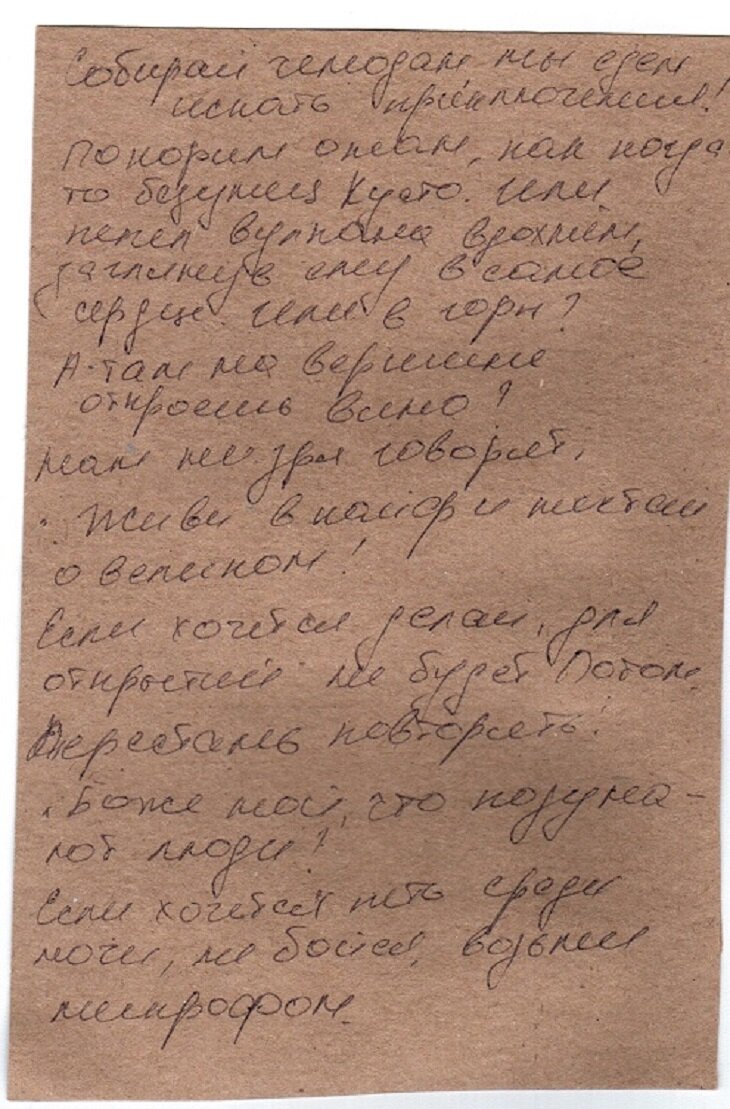 Собирай чемодан, мы едем
искать приключения!
Покорим океан, как когда
то безумец Кусто. Или
пепел вулкана вдохнём,
заглянув ему в самое
сердце. Или в горы?
А там на вершине
откроешь вино?
Нам не зря говорят,
"Живи в кайф и мечтай
о великом!
Если хочется делай, для
открытий не будет Потом.
Перестань повторять!
"Боже мой, что подума-
ют люди?
Если хочется петь среди
ночи, не бойся, возьми
микрофон.